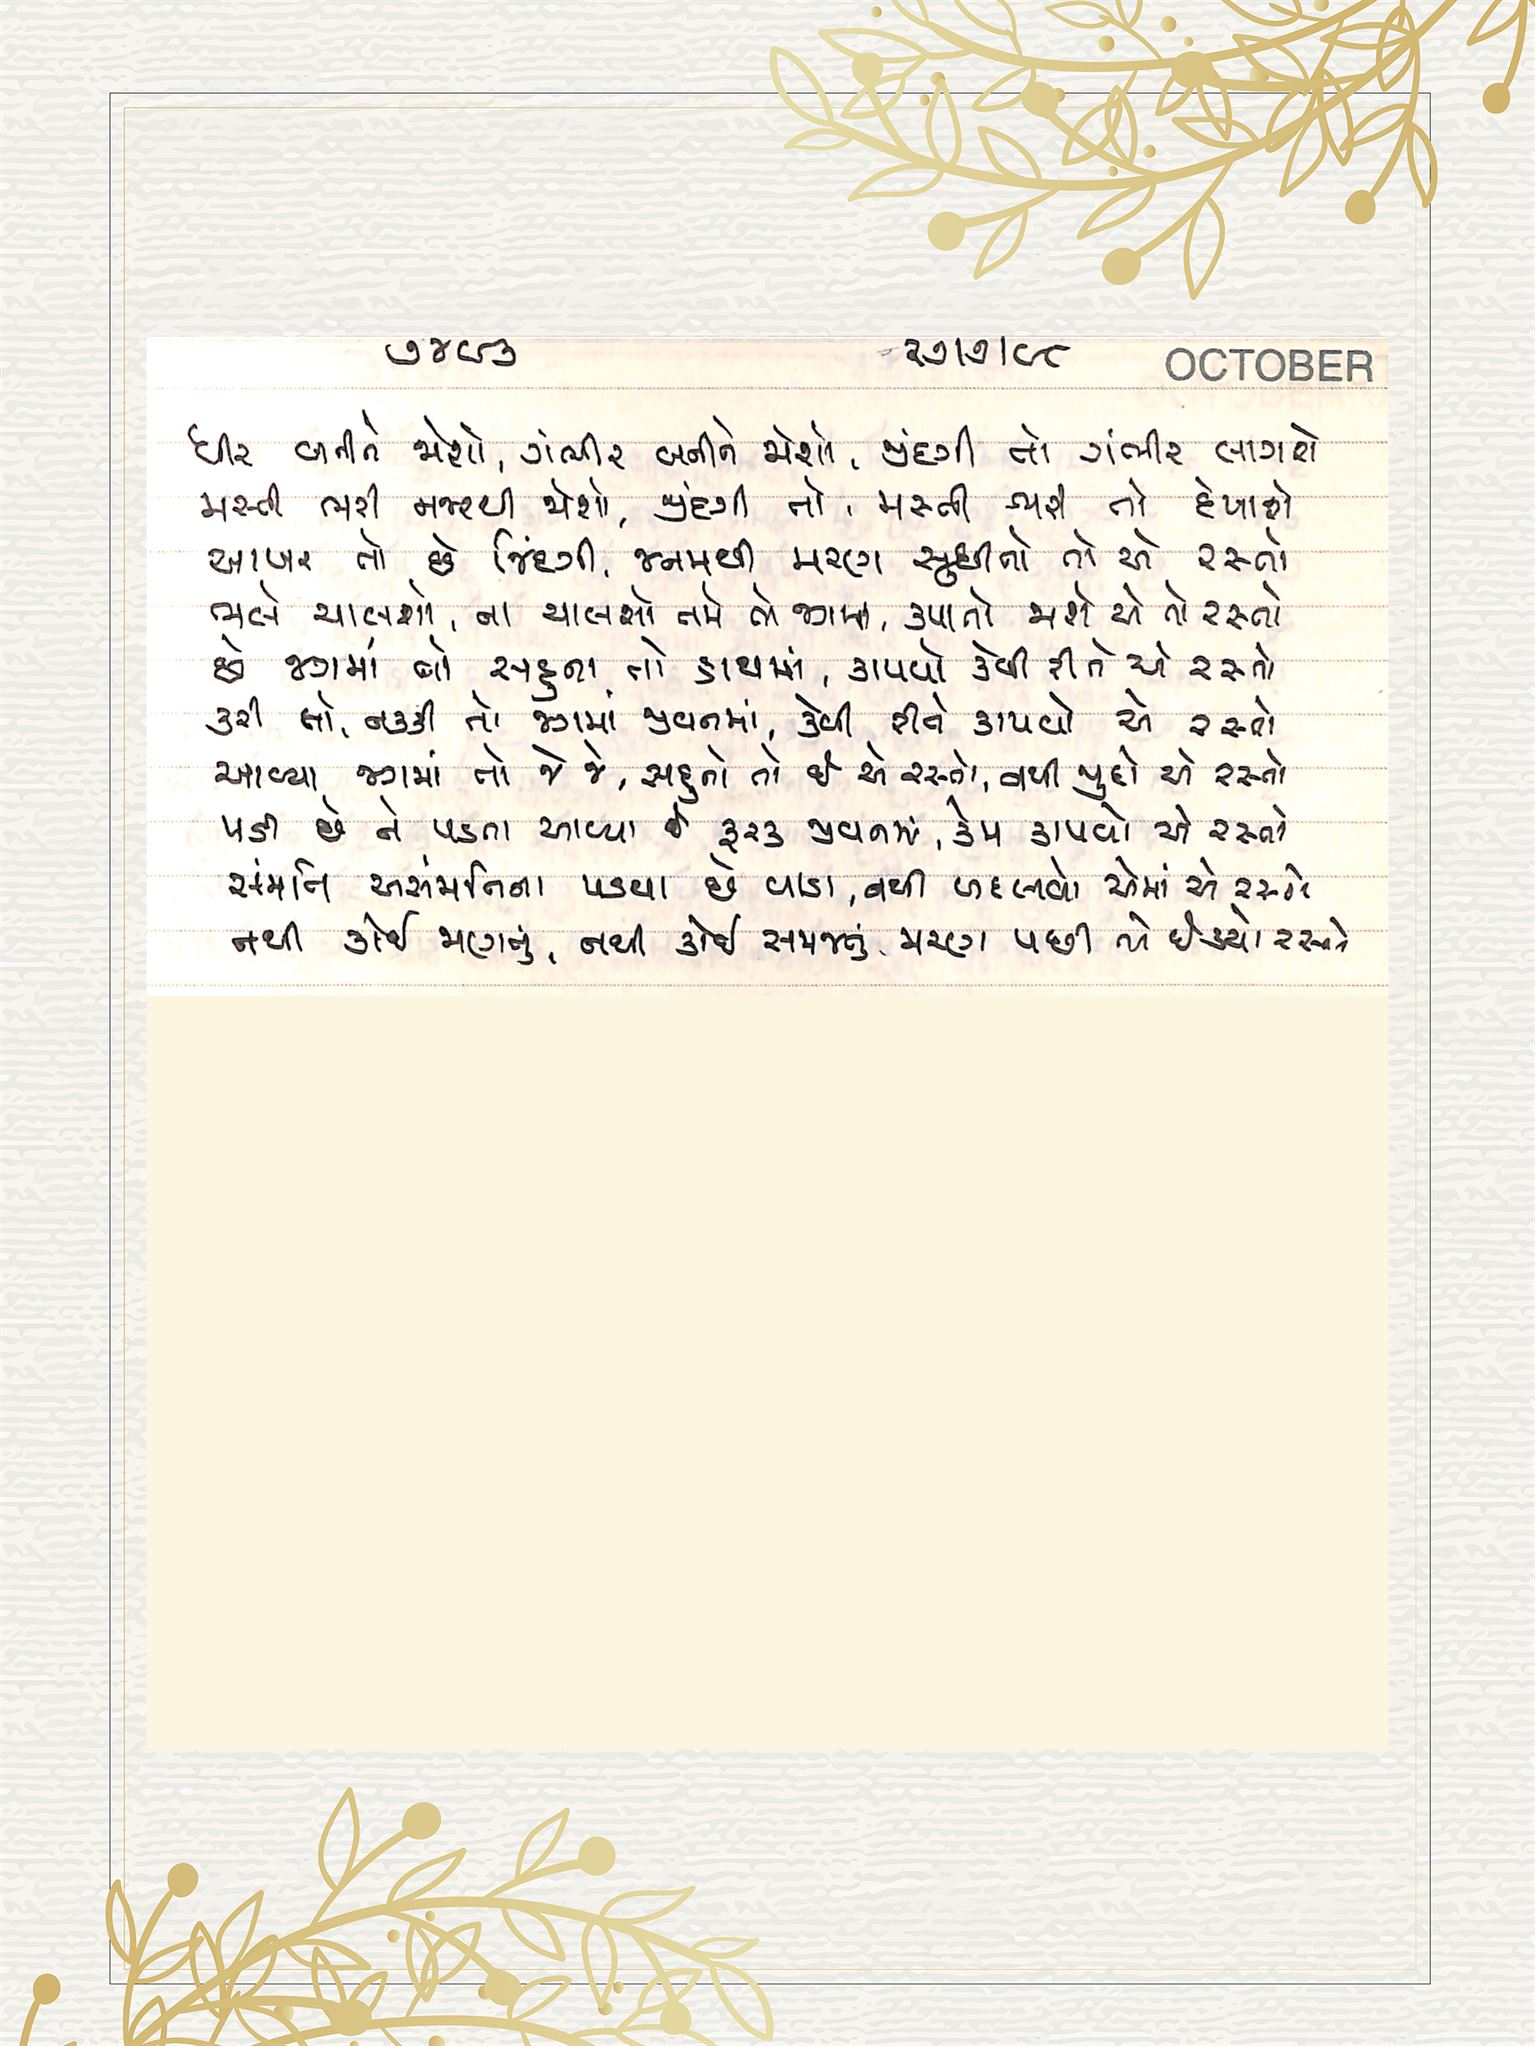 ૭૪૯૩ ૨૭/૭/૯૮ OCTOBER
ધીર બનીને જોશો, ગંભીર બનીને જોશો, જીંદગી તો ગંભીર લાગશે
મસ્તી ભરી નજરથી જોશો, જીંદગી તો, મસ્તી ભરી તો દેખાશે
આખર તો છે જિંદગી, જનમથી મરણ સુધીનો તો એ રસ્તો
ભલે ચાલશો, ના ચાલશો તમે તો જગમાં, કપાતો જાશે એ તો રસ્તો
છે જગમાં તો સહુના તો હાથમાં, કાપવો કેવી રીતે એ રસ્તો
કરી લો, નક્કી તો જગમાં જીવનમાં, કેવી રીતે કાપવો એ રસ્તો
આવ્યા જગમાં તો જે જે, સહુનો તો છે એ રસ્તો, નથી જુદો એ રસ્તો
પડી છે ને પડતા આવ્યા છે ફરક જીવનમાં, કેમ કાપવો એ રસ્તો
સંમતિ અસંમતિના પડયા છે વાડા, નથી બદલાવો એમાં એ રસ્તો
નથી કોઈ જાણતું, નથી કોઈ સમજતું, મરણ પછી નો છે કયો રસ્તો